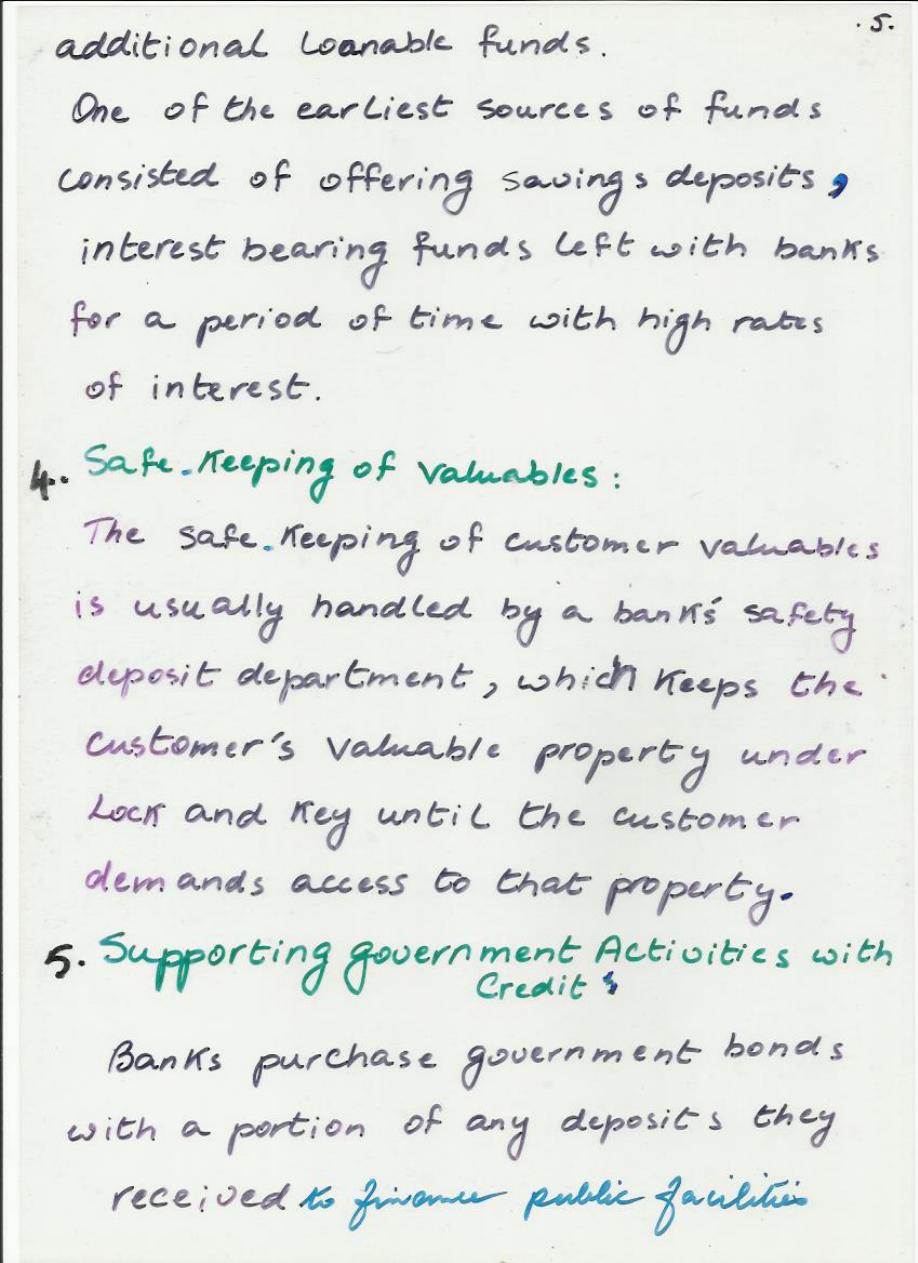 .5.
additional loanable funds.
One of the earliest sources of funds
consisted of offering savings deposits,
interest bearing funds left with banks
for a period of time with high rates
of interest.
4.. Safe.Keeping of Valuables:
The safe.Keeping of customer valuables
is usually handled by a bank's safety
deposit department, which Keeps the
customer's valuable property under
Lock and Key until the customer
demands access to that property.
5. Supporting government Activities with
Credit:
Banks purchase government bonds
with a portion of any deposits they
received to finance public facilities